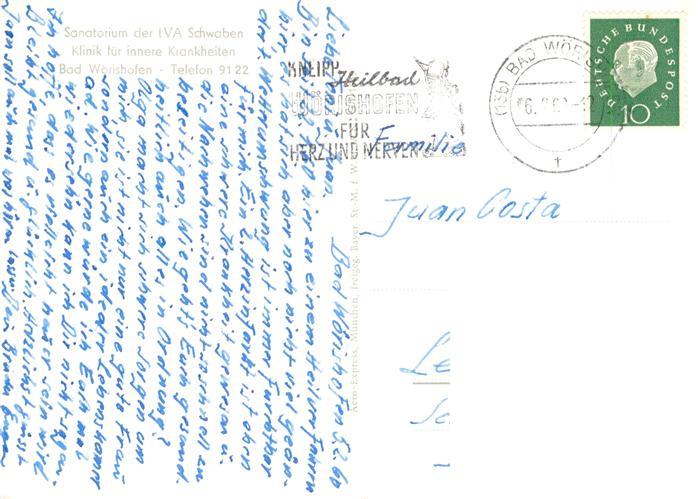 Sanatorium der LVA Schwaben
Klinik für innere Krankheiten
Bad Wörishofen - Telefon 91 22
KNEIPP Heilbad
WÖRISHOFEN
FÜR
HERZ UND NERVEN
(13b) BAD WÖRISHOFEN
DEUTSCHE BUNDESPOST
10
Familie
Juan Costa
Le
Aero-Express, München, freigeg. Bayer. St.-M. f. W
Bad Wörishofen 5.2.60
hier zu einem Heilverfahren
hier, hat sich aber noch nicht viel geän-
dert, Witterungsumschwung ist immer furchtbar
für mich. Ein 2. Herzinfarkt ist eben
eine schwere Krankheit gewesen u.
die Nachwehen sind nicht so schnell zu
beseitigen. Wie geht's Euch gesund-
heitlich auch alles in Ordnung?
Olga macht sich schwere Sorgen um
mich, sie ist nicht nur eine gute Frau
sondern auch ein idealer Lebenskamerad
wie gerne würde ich Euch mal
wiedersehen kann ich Dir nicht sagen.
Ich hoffe das es vielleicht heuer sein wird
Bleibt gesund u. glücklich. Herzlichst grüsst